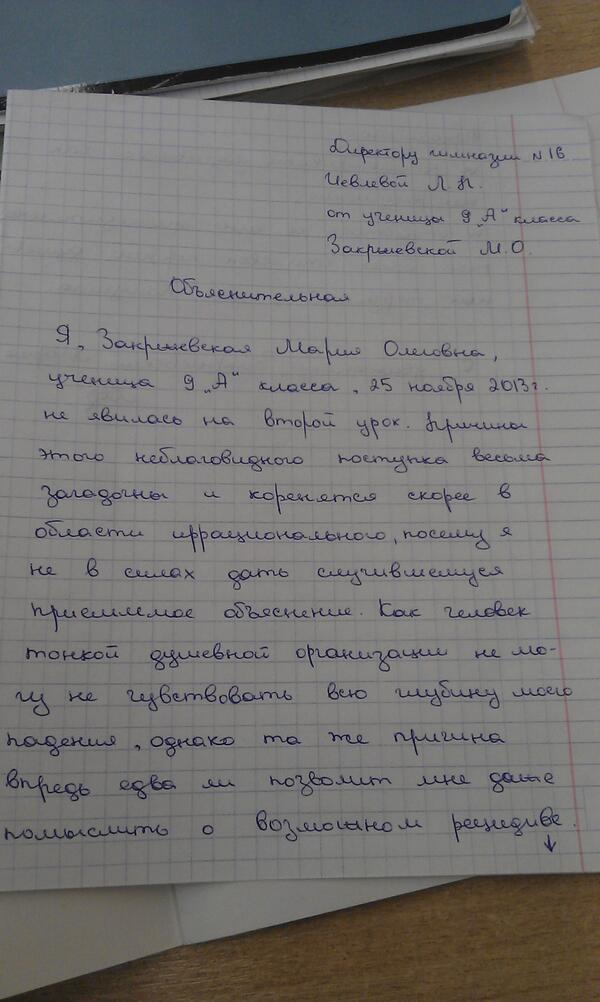 Директору гимназии №16
Иевлевой Л.Н.
от ученицы 9 „А“ класса
Закржевской М.О.
Объяснительная
Я, Закржевская Мария Олеговна,
ученица 9 „А“ класса, 25 ноября 2013 г.
не явилась на второй урок. Причины
этого неблаговидного поступка весьма
загадочны и коренятся скорее в
области иррационального, посему я
не в силах дать случившемуся
приемлемое объяснение. Как человек
тонкой душевной организации не мо-
гу не чувствовать всю глубину моего
падения, однако та же причина
впредь едва ли позволит мне даже
помыслить о возможном рецидиве.
↓